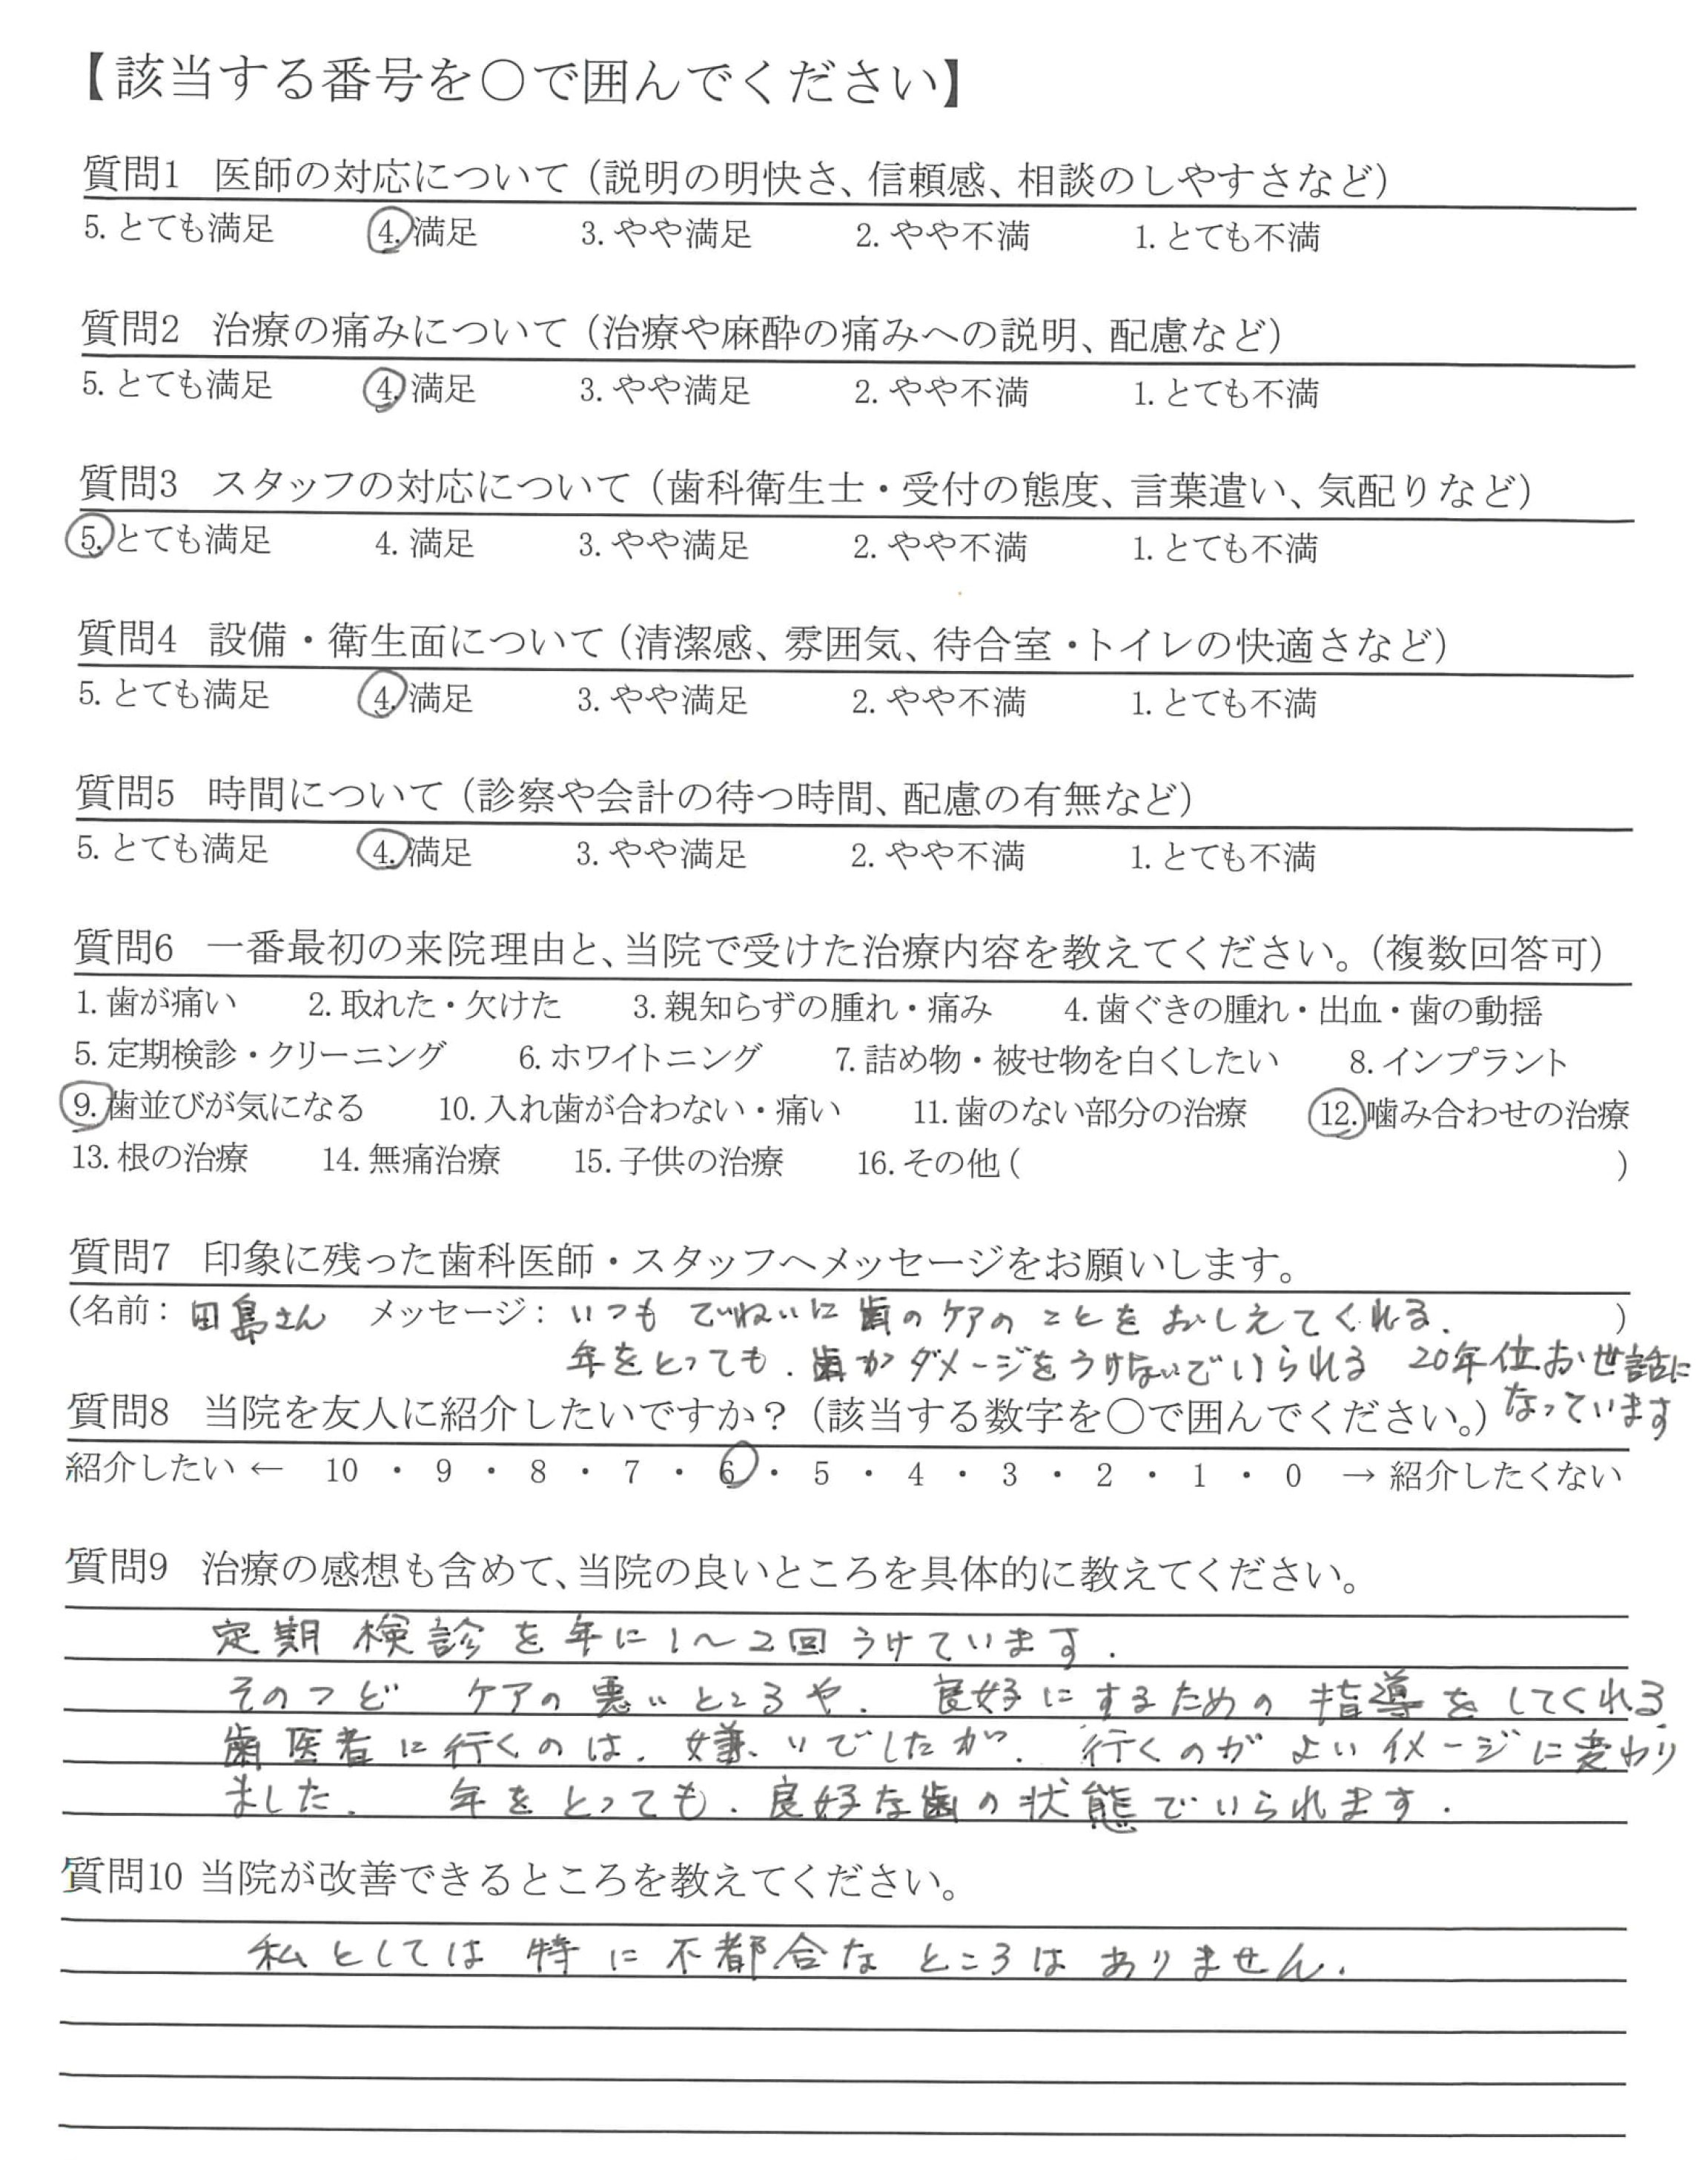 【該当する番号を○で囲んでください】
質問1 医師の対応について（説明の明快さ、信頼感、相談のしやすさなど）
5. とても満足 4. 満足 3. やや満足 2. やや不満 1. とても不満
質問2 治療の痛みについて（治療や麻酔の痛みへの説明、配慮など）
5. とても満足 4. 満足 3. やや満足 2. やや不満 1. とても不満
質問3 スタッフの対応について（歯科衛生士・受付の態度、言葉遣い、気配りなど）
5. とても満足 4. 満足 3. やや満足 2. やや不満 1. とても不満
質問4 設備・衛生面について（清潔感、雰囲気、待合室・トイレの快適さなど）
5. とても満足 4. 満足 3. やや満足 2. やや不満 1. とても不満
質問5 時間について（診察や会計の待つ時間、配慮の有無など）
5. とても満足 4. 満足 3. やや満足 2. やや不満 1. とても不満
質問6 一番最初の来院理由と、当院で受けた治療内容を教えてください。（複数回答可）
1. 歯が痛い 2. 取れた・欠けた 3. 親知らずの腫れ・痛み 4. 歯ぐきの腫れ・出血・歯の動揺
5. 定期検診・クリーニング 6. ホワイトニング 7. 詰め物・被せ物を白くしたい 8. インプラント
9. 歯並びが気になる 10. 入れ歯が合わない・痛い 11. 歯のない部分の治療 12. 噛み合わせの治療
13. 根の治療 14. 無痛治療 15. 子供の治療 16. その他（ ）
質問7 印象に残った歯科医師・スタッフへメッセージをお願いします。
（名前： 田島さん メッセージ： いつも ていねいに 歯のケアの ことを おしえてくれる. ）
年をとっても. 歯がダメージをうけないでいられる 20年位お世話に
なっています
質問8 当院を友人に紹介したいですか？（該当する数字を○で囲んでください。）
紹介したい ← 10 ・ 9 ・ 8 ・ 7 ・ 6 ・ 5 ・ 4 ・ 3 ・ 2 ・ 1 ・ 0 → 紹介したくない
質問9 治療の感想も含めて、当院の良いところを具体的に教えてください。
定期検診を年に1〜2回うけています.
そのつど ケアの悪いところや. 良好にするための指導をしてくれる.
歯医者に行くのは. 嫌いでしたが. 行くのがよいイメージに変わり
ました. 年をとっても. 良好な歯の状態でいられます.
質問10 当院が改善できるところを教えてください。
私としては 特に不都合な ところは ありません.